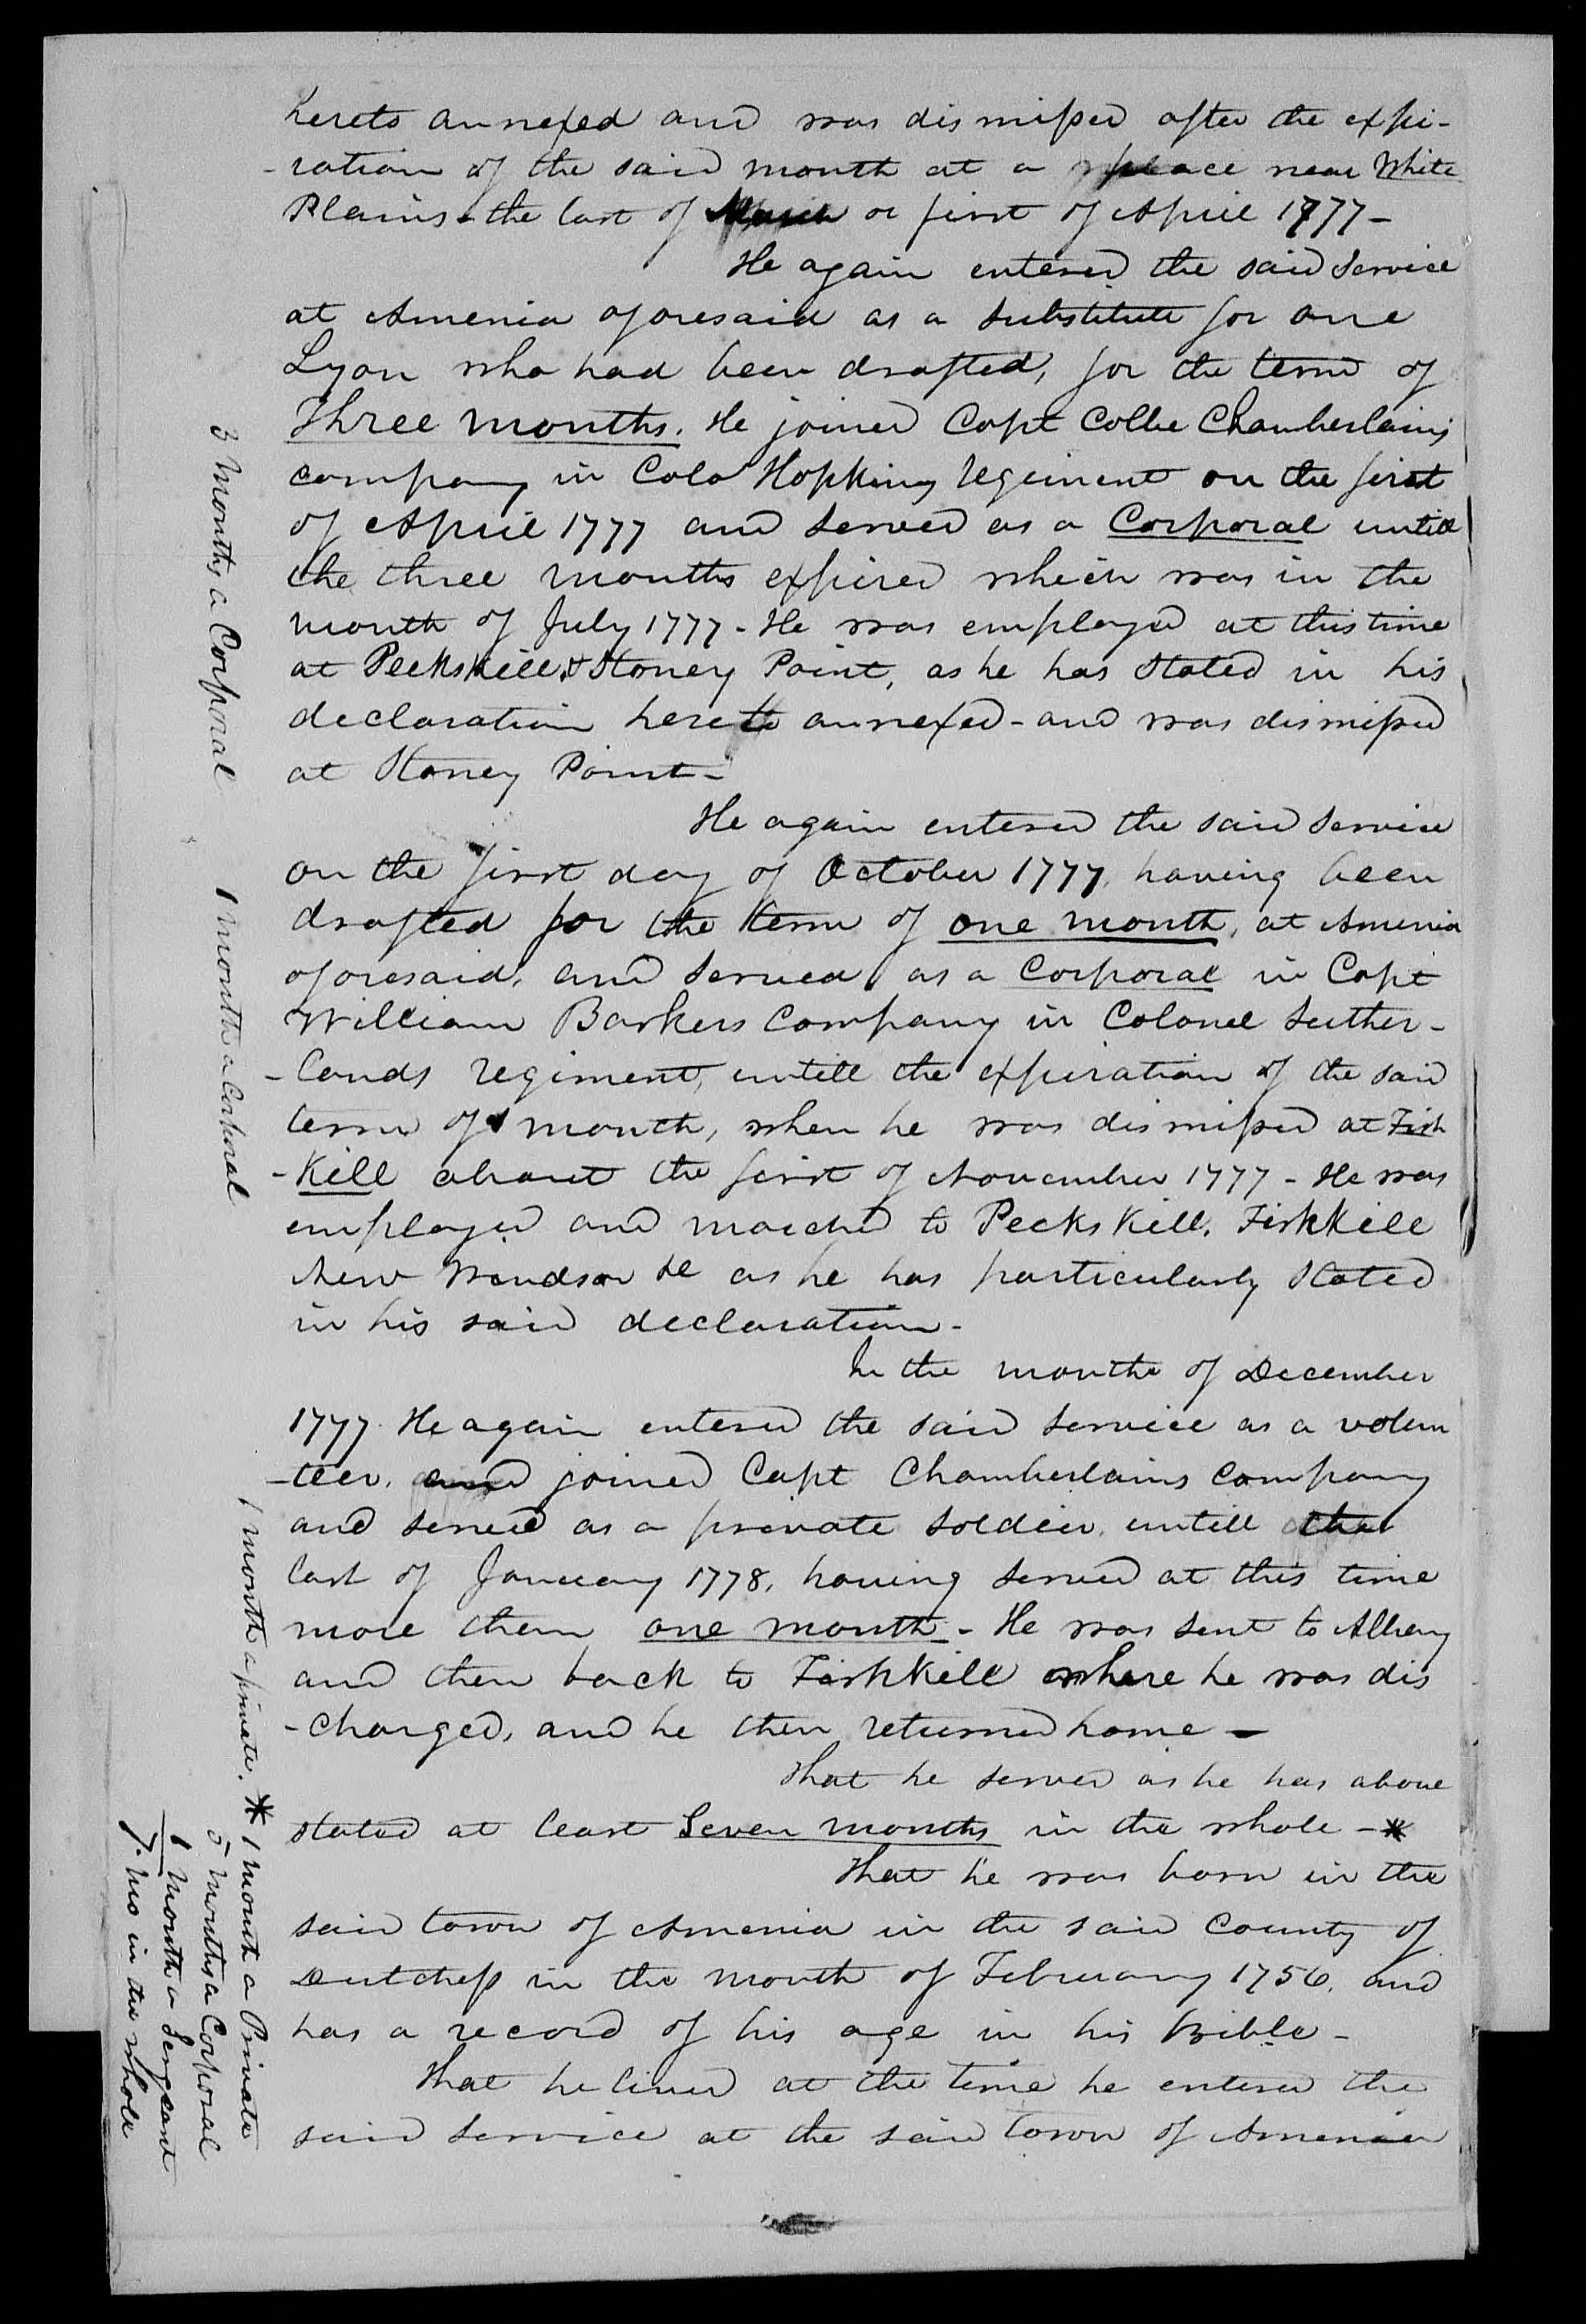 hereto annexed and was dismissed after the expi-
-ration of the said month at a place near White
Plains the last of March or first of April 1777-
He again entered the said service
at Amenia aforesaid as a substitute for one
Lyon who had been drafted, for the term of
Three months. He joined Capt Colbe Chamberlains
company in Colo Hopkins regiment on the first
of April 1777 and served as a Corporal untill
the three months expired which was in the
month of July 1777 - He was employed at this time
at Peekskill & Stoney Point, as he has stated in his
declaration hereto annexed - and was dismissed
at Stoney Point -
He again entered the said service
on the first day of October 1777, having been
drafted for the term of one month, at Amenia
aforesaid, and served as a Corporal in Capt
William Barkers Company in Colonel Suther-
-lands regiment, untill the expiration of the said
term of 1 month, when he was dismissed at Fish
-Kill about the first of November 1777 - He was
employed and marched to Peeks Kill, Fishkill
New Windsor &c as he has particularly stated
in his said declaration -
In the months of December
1777 He again entered the said service as a volun
-teer, and joined Capt Chamberlains company
and served as a private soldier, untill the
last of January 1778, having served at this time
more then one month - He was sent to Albany
and then back to Fishkill where he was dis
-charged, and he then returned home -
That he served as he has above
stated at least Seven months in the whole - *
That he was born in the
said town of Amenia in the said County of
Dutchess in the month of February 1756, and
has a record of his age in his Bible -
That he lived at the time he entered the
said service at the said town of Amenia
3 Months a Corporal
1 month a Corporal
1 month a private.
* 1 month a Private
5 months a Corporal
1 month a Sergeant
7. mo in the whole